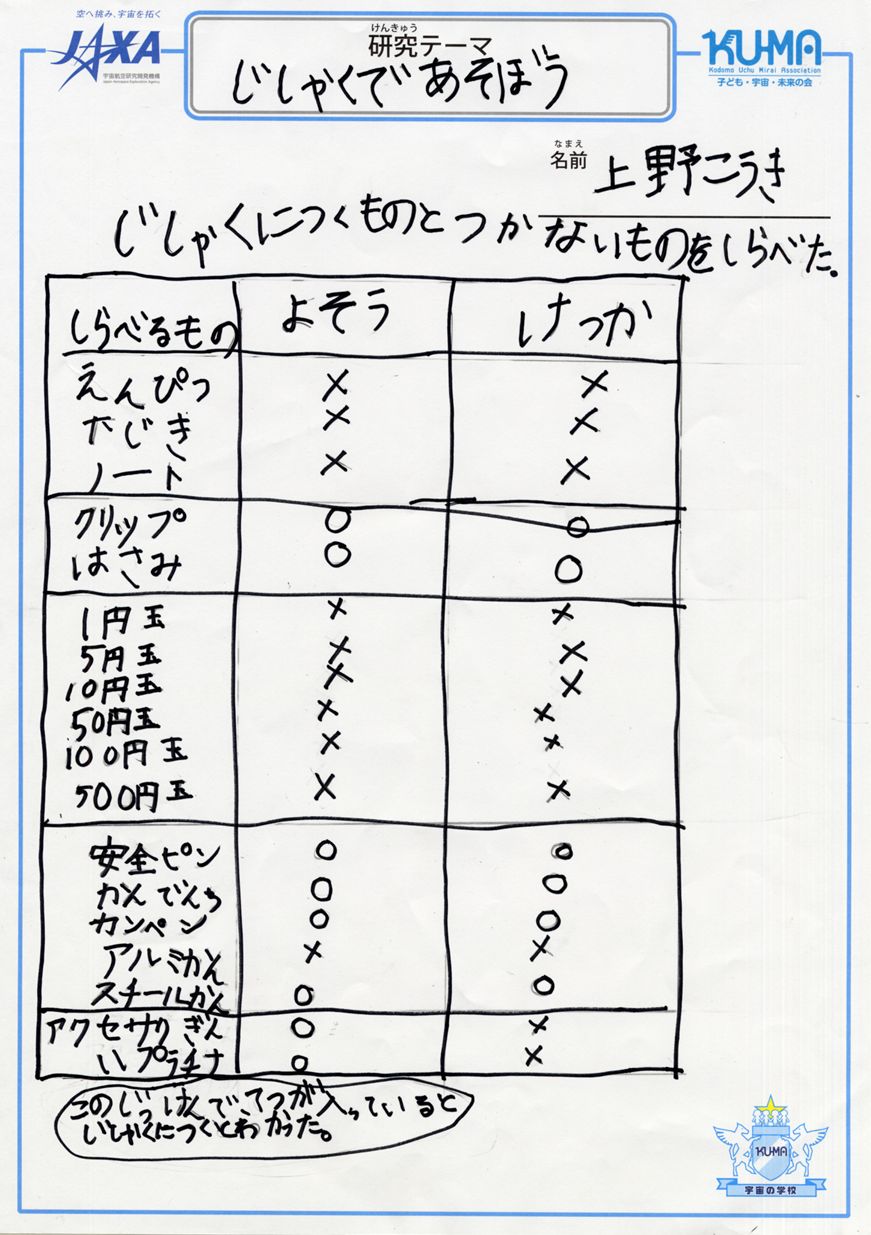 空へ挑み、宇宙を拓く
JAXA
宇宙航空研究開発機構
Japan Aerospace Exploration Agency
けんきゅう
研究テーマ
じしゃくであそぼう
KU-MA
Kodomo Uchu Mirai Association
子ども・宇宙・未来の会
なまえ
名前 上野こうき
じしゃくにつくものとつかないものをしらべた。
しらべるもの よそう けっか
えんぴつ × ×
たじき × ×
ノート × ×
クリップ ○ ○
はさみ ○ ○
1円玉 × ×
5円玉 × ×
10円玉 × ×
50円玉 × ×
100円玉 × ×
500円玉 × ×
安全ピン ○ ○
かんでんち ○ ○
カンペン ○ ○
アルミかん × ×
スチールかん ○ ○
アクセサリぎん ○ ×
〃プラチナ ○ ×
このじっけんで、てつが入っていると
じしゃくにつくとわかった。
KU-MA
宇宙の学校